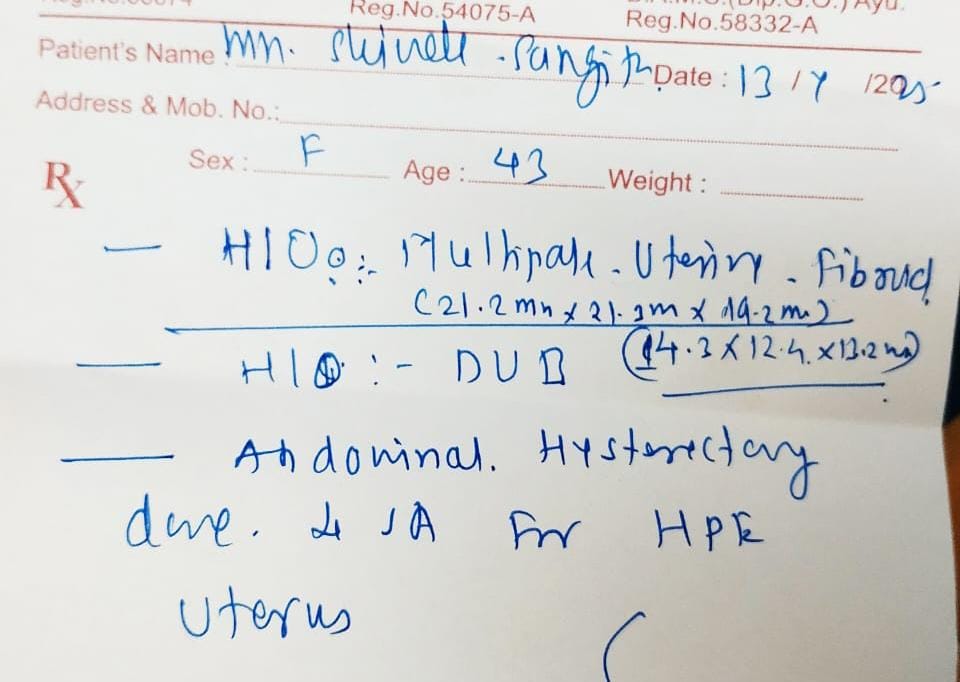 Reg.No.54075-A
Reg.No.58332-A
Patient's Name Mn. Date : 13 / 7 /2025
Address & Mob. No.:
Sex : F Age : 43 Weight :
Rx
— H/O Multipale. Uteriny. Fibroid
(21.2 mm x 21.3m x 19.2 m)
— H/O :- DUB (14.3 x 12.4 x 13.2 mm)
— Abdominal. Hysterectomy
done. For HPE
Uterus